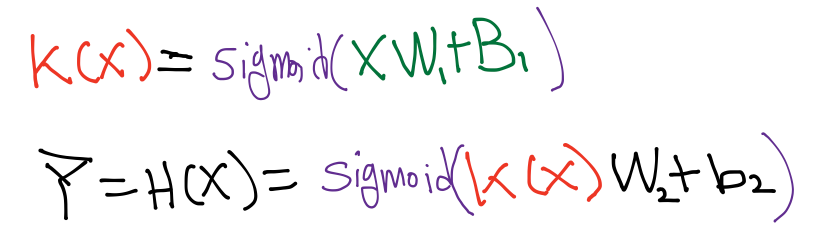 K(X) = sigmoid(XW₁+B₁)
Ȳ = H(X) = sigmoid(K(X)W₂+b₂)